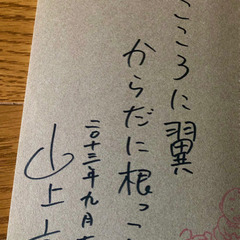 こころに翼
からだに根っ
二〇十三年九月
山上